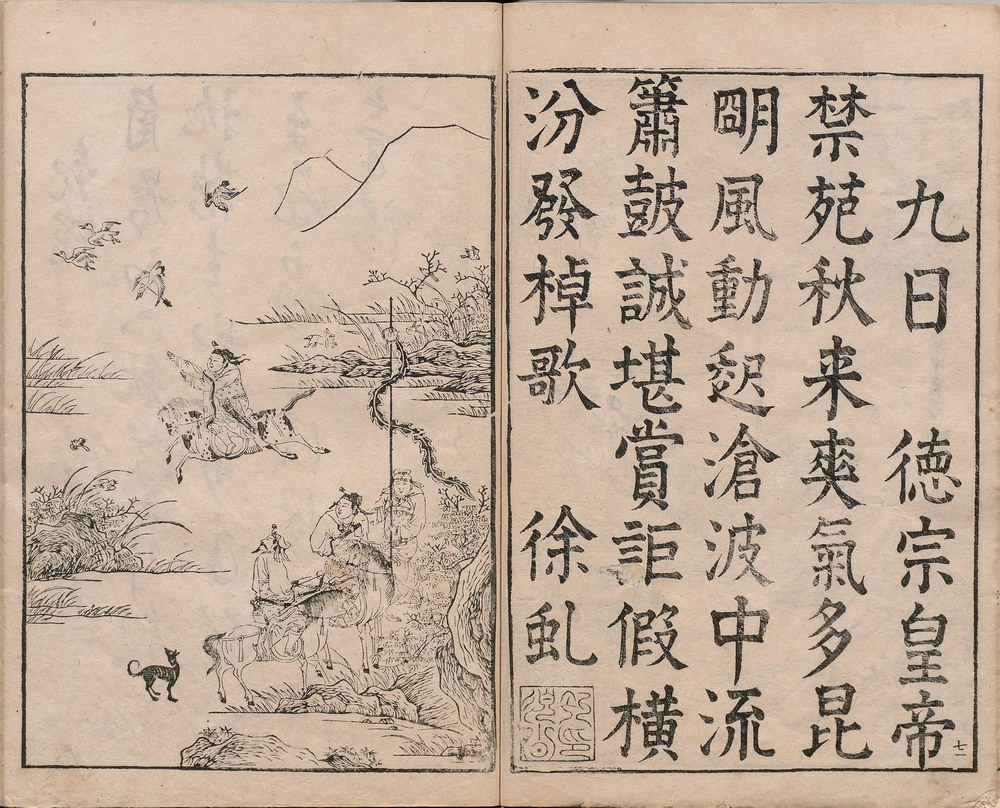 九日 德宗皇帝
禁苑秋来爽氣多昆
明風動起滄波中流
簫鼓誠堪賞詎假橫
汾發棹歌 徐虬
七一